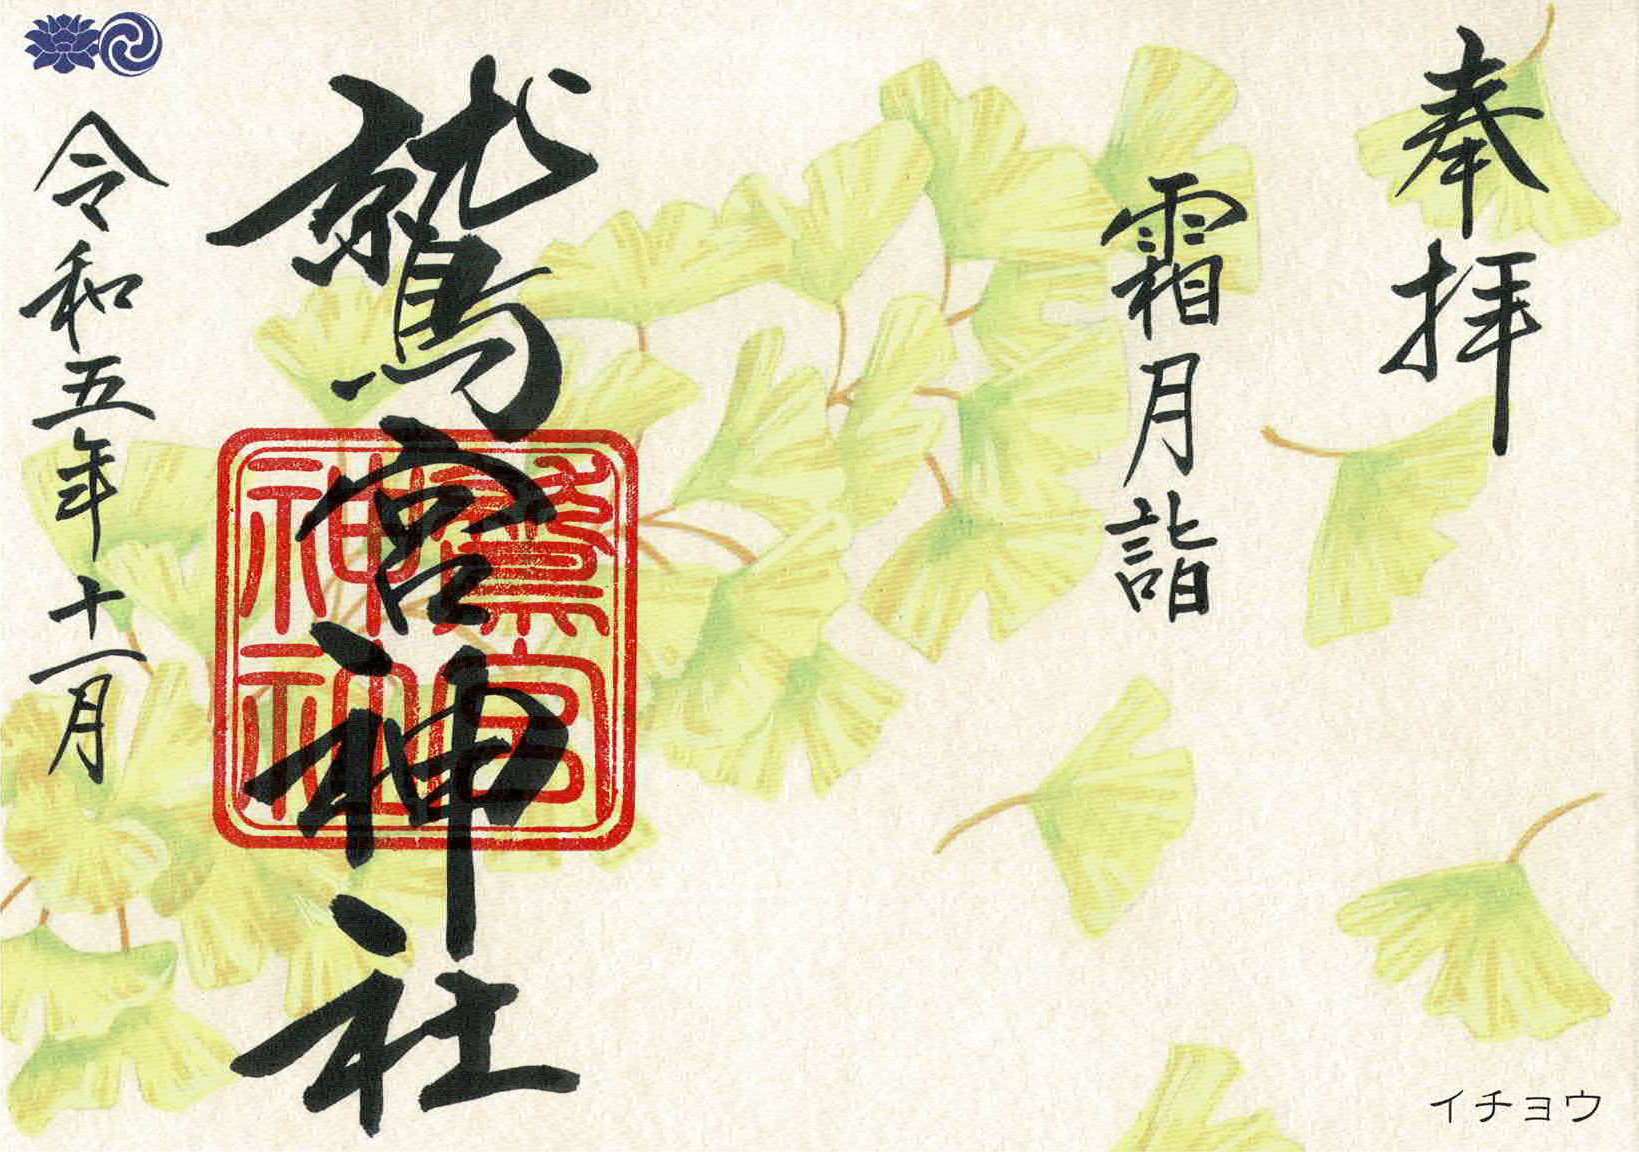 奉拝
霜月詣
鷲宮神社
鷲宮
神社
令和五年十一月
イチョウ